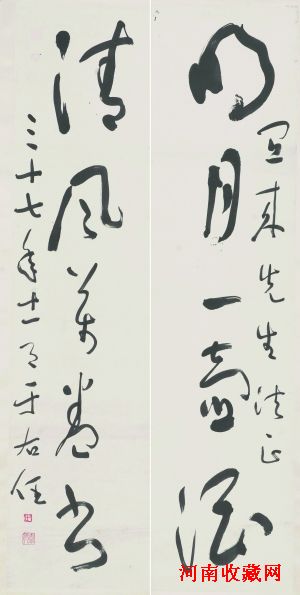 來先生法正
明月一壺酒
清風萬卷書
三十七年十一月于右任
河南收藏网